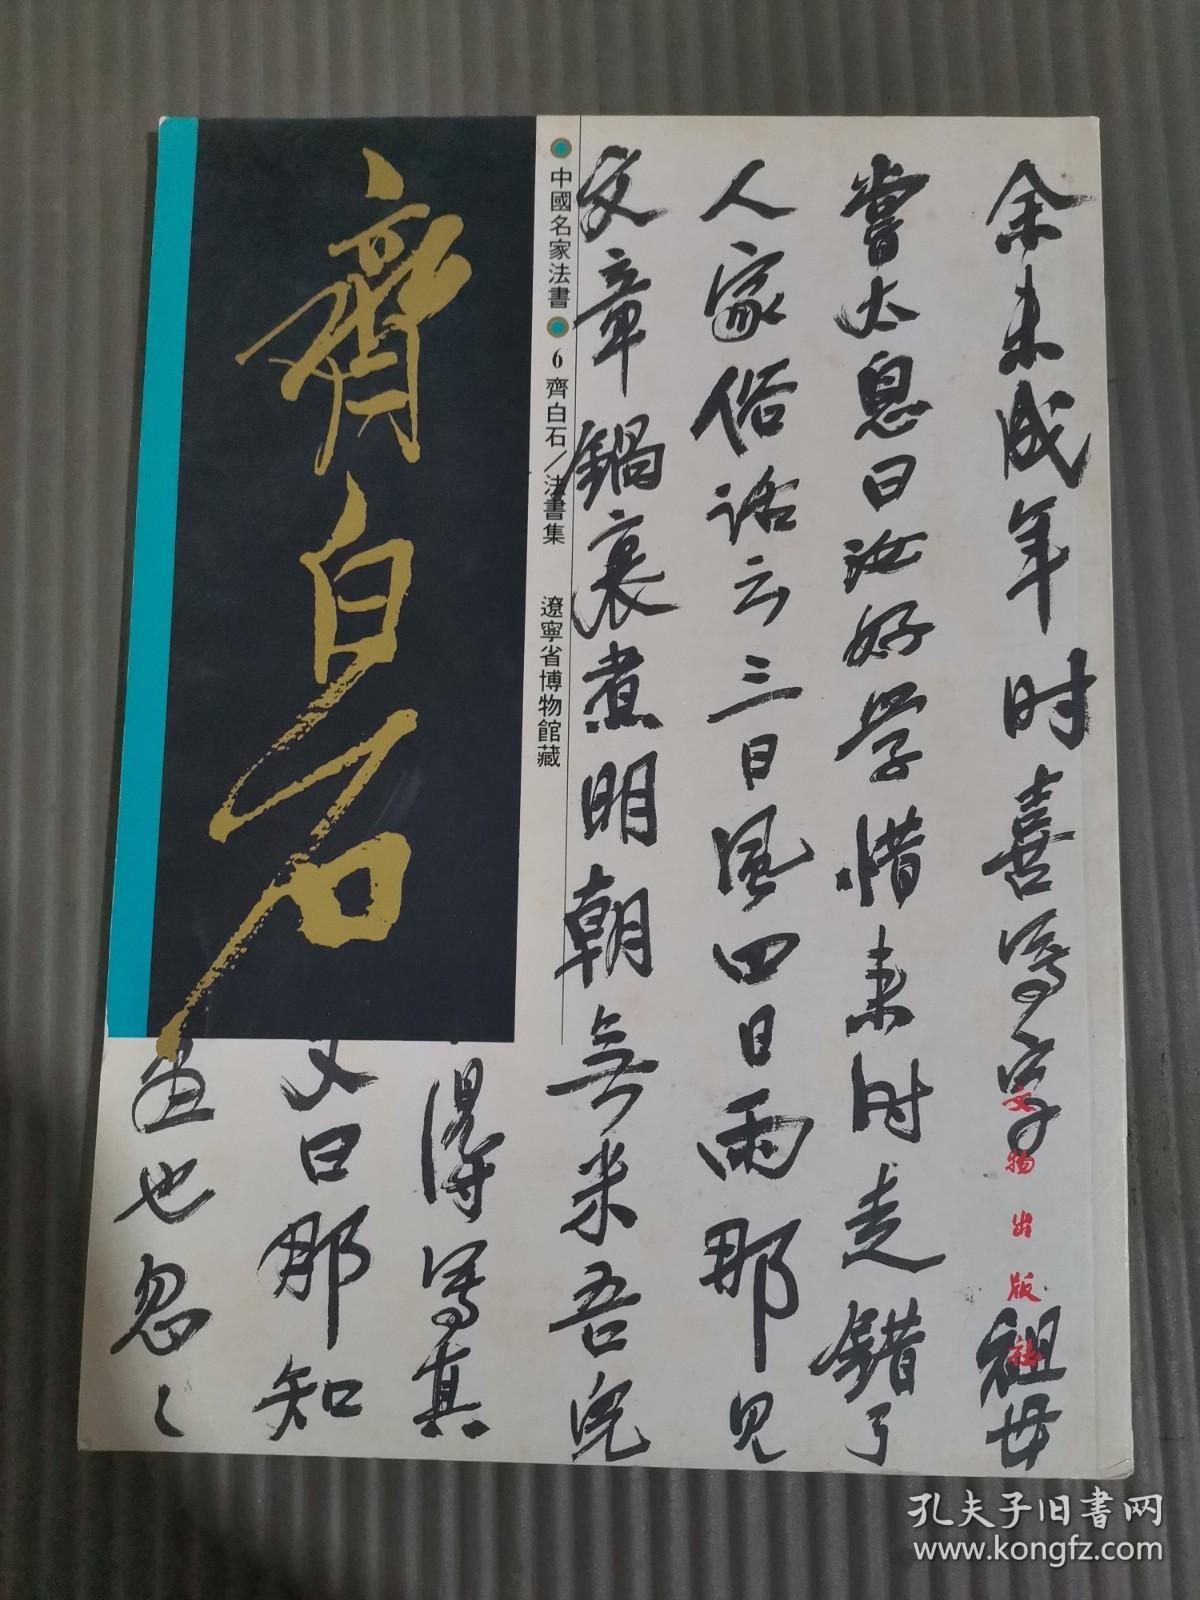 余未成年时喜写字祖母
尝太息曰汝好学惜来时走错了
人家俗话云三日风四日雨那见
文章锅裏煮明朝无米吾儿
得写真
又曰那知
画也忽々
中國名家法書
6 齊白石/法書集
遼寧省博物館藏
齊白石
文物出版社
孔夫子旧书网
www.kongfz.com